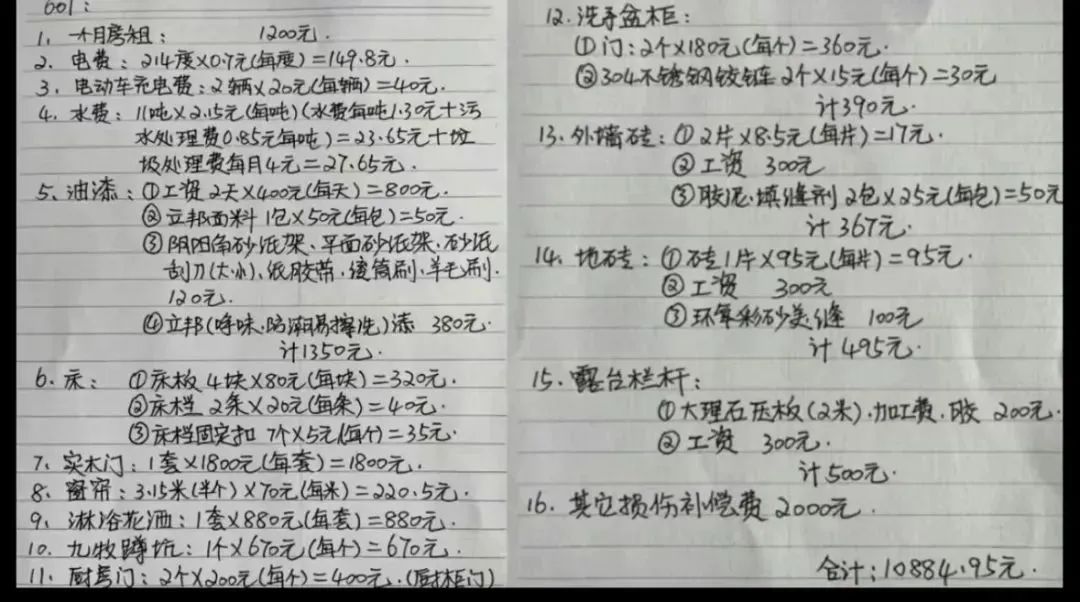 601:
1、一个月房租: 1200元.
2、电费: 214度×0.7元(每度)=149.8元.
3、电动车充电费: 2辆×20元(每辆)=40元.
4、水费: 11吨×2.15元(每吨)(水费每吨1.30元+污
水处理费0.85元每吨)=23.65元+垃
圾处理费每月4元=27.65元.
5、油漆: ①工资 2天×400元(每天)=800元.
②立邦面料 1包×50元(每包)=50元.
③阴阳角砂纸架、平面砂纸架、砂纸
刮刀(大小)、纸胶带、滚筒刷、羊毛刷.
120元.
④立邦(净味、防潮易擦洗)漆 380元.
计1350元.
6、床: ①床板 4块×80元(每块)=320元.
②床栏 2条×20元(每条)=40元.
③床栏固定扣 7个×5元(每个)=35元.
7、实木门: 1套×1800元(每套)=1800元.
8、窗帘: 3.15米(半个)×70元(每米)=220.5元.
9、淋浴花洒: 1套×880元(每套)=880元.
10、九牧蹲坑: 1个×670元(每个)=670元.
11、厨房门: 2个×200元(每个)=400元.(厨柜门)
12、洗手盆柜:
①门: 2个×180元(每个)=360元.
②304不锈钢铰链 2个×15元(每个)=30元
计390元.
13、外墙砖: ①2片×8.5元(每片)=17元.
②工资 300元
③胶泥、填缝剂 2包×25元(每包)=50元
计367元.
14、地砖: ①砖1片×95元(每片)=95元.
②工资 300元
③环氧彩砂美缝 100元
计495元.
15、露台栏杆:
①大理石压板(2米)、加工费、胶 200元.
②工资 300元.
计500元.
16、其它损伤补偿费 2000元.
合计:10884.95元.